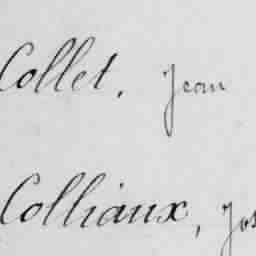 Collet, Jean
Colliaux, Jos